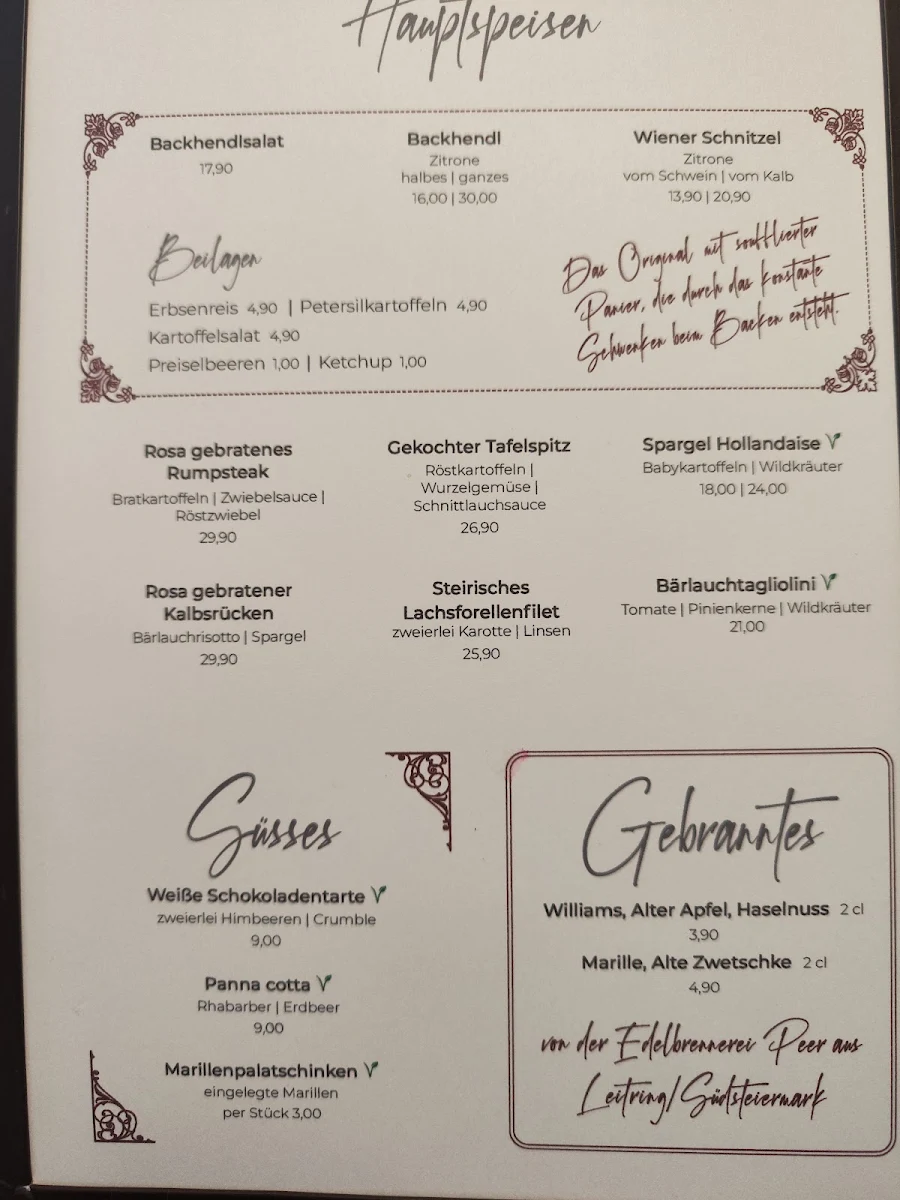 Hauptspeisen
Backhendlsalat
17,90
Backhendl
Zitrone
halbes | ganzes
16,00 | 30,00
Wiener Schnitzel
Zitrone
vom Schwein | vom Kalb
13,90 | 20,90
Beilagen
Erbsenreis 4,90 | Petersilkartoffeln 4,90
Kartoffelsalat 4,90
Preiselbeeren 1,00 | Ketchup 1,00
Das Original mit soufflierter
Panier, die durch das konstante
Schwenken beim Backen entsteht.
Rosa gebratenes
Rumpsteak
Bratkartoffeln | Zwiebelsauce |
Röstzwiebel
29,90
Gekochter Tafelspitz
Röstkartoffeln |
Wurzelgemüse |
Schnittlauchsauce
26,90
Spargel Hollandaise V
Babykartoffeln | Wildkräuter
18,00 | 24,00
Rosa gebratener
Kalbsrücken
Bärlauchrisotto | Spargel
29,90
Steirisches
Lachsforellenfilet
zweierlei Karotte | Linsen
25,90
Bärlauchtagliolini V
Tomate | Pinienkerne | Wildkräuter
21,00
Süsses
Weiße Schokoladentarte V
zweierlei Himbeeren | Crumble
9,00
Panna cotta V
Rhabarber | Erdbeer
9,00
Marillenpalatschinken V
eingelegte Marillen
per Stück 3,00
Gebranntes
Williams, Alter Apfel, Haselnuss 2 cl
3,90
Marille, Alte Zwetschke 2 cl
4,90
von der Edelbrennerei Peer aus
Leitring/Südsteiermark